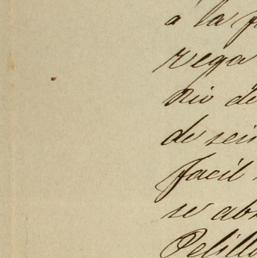 á la f
rega
Rio de
de sei
facil
se abs
Pelill